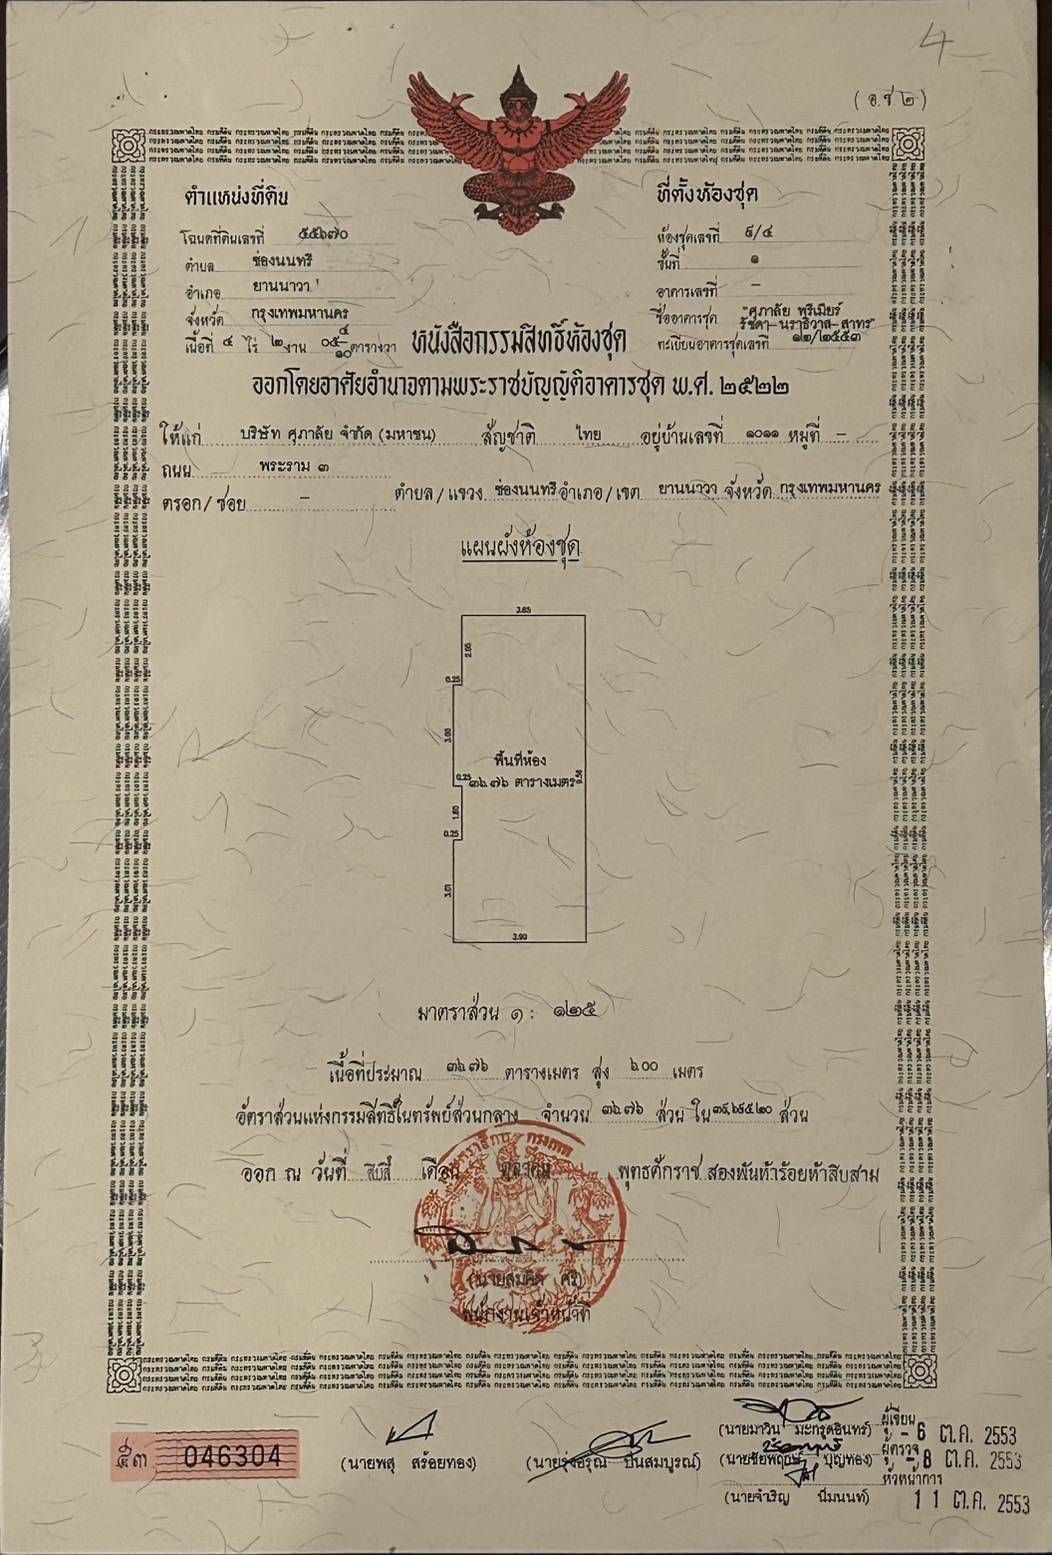 4
(อ.ช.๒)
ตำแหน่งที่ดิน
โฉนดที่ดินเลขที่ ๕๕๖๗๐
ตำบล ช่องนนทรี
อำเภอ ยานนาวา
จังหวัด กรุงเทพมหานคร
เนื้อที่ ๔ ไร่ ๒ งาน ๐๕ ๔/๑๐ ตารางวา
ที่ตั้งห้องชุด
ห้องชุดเลขที่ ๙/๔
ชั้นที่ ๑
อาคารเลขที่ –
ชื่ออาคารชุด "ศุภาลัย พรีเมียร์
รัชดา-นราธิวาส-สาทร"
ทะเบียนอาคารชุดเลขที่ ๑๒/๒๕๕๓
หนังสือกรรมสิทธิ์ห้องชุด
ออกโดยอาศัยอำนาจตามพระราชบัญญัติอาคารชุด พ.ศ. ๒๕๒๒
ให้แก่ บริษัท ศุภาลัย จำกัด (มหาชน) สัญชาติ ไทย อยู่บ้านเลขที่ ๑๐๑๑ หมู่ที่ –
ถนน พระราม ๓
ตรอก/ซอย – ตำบล/แขวง ช่องนนทรี อำเภอ/เขต ยานนาวา จังหวัด กรุงเทพมหานคร
แผนผังห้องชุด
3.65
2.05
0.25
3.00
พื้นที่ห้อง
0.25 ๓๖.๗๖ ตารางเมตร
1.60
0.25
3.90
มาตราส่วน ๑ : ๑๒๕
เนื้อที่ประมาณ ๓๖.๗๖ ตารางเมตร สูง ๖.๐๐ เมตร
อัตราส่วนแห่งกรรมสิทธิ์ในทรัพย์ส่วนกลาง จำนวน ๓๖.๗๖ ส่วน ใน ๓๙,๖๙๕.๒๐ ส่วน
ออก ณ วันที่ สิบสี่ เดือน ตุลาคม พุทธศักราช สองพันห้าร้อยห้าสิบสาม
(นายสมคิด ศรี)
พนักงานเจ้าหน้าที่
ส๓ 046304
(นายพสุ สร้อยทอง)
(นายรุ่งอรุณ ปิ่นสมบูรณ์)
(นายมาวิน มะกรูดอินทร์) ผู้เขียน - 6 ต.ค. 2553
(นายชัยพฤกษ์ บุญทอง) ผู้ตรวจ - 8 ต.ค. 2553
หัวหน้าการ
(นายจำเริญ นิ่มนนท์) 11 ต.ค. 2553